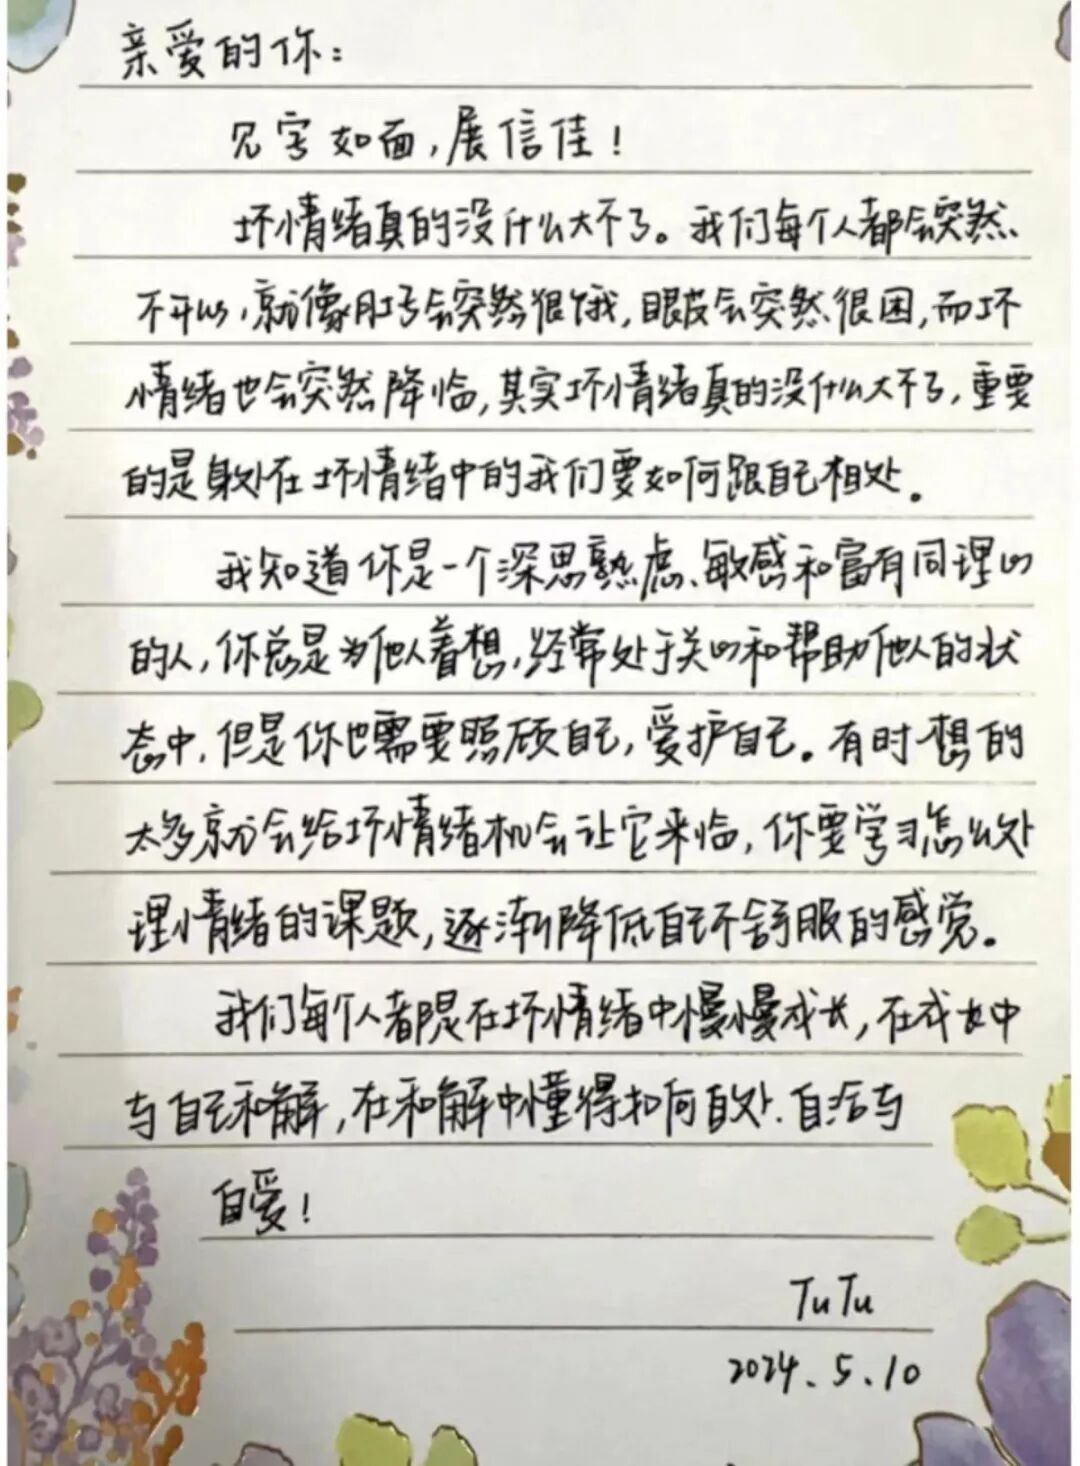 亲爱的你：
见字如面，展信佳！
坏情绪真的没什么大不了。我们每个人都会突然
不开心，就像肚子会突然很饿，眼皮会突然很困，而坏
情绪也会突然降临，其实坏情绪真的没什么大不了，重要
的是身处在坏情绪中的我们要如何跟自己相处。
我知道你是一个深思熟虑、敏感和富有同理心
的人，你总是为他人着想，经常处于关心和帮助他人的状
态中，但是你也需要照顾自己，爱护自己。有时想的
太多就会给坏情绪机会让它来临，你要学习怎么处
理情绪的课题，逐渐降低自己不舒服的感觉。
我们每个人都是在坏情绪中慢慢成长，在成长中
与自己和解，在和解中懂得如何自处、自洽与
自爱！
TuTu
2024.5.10